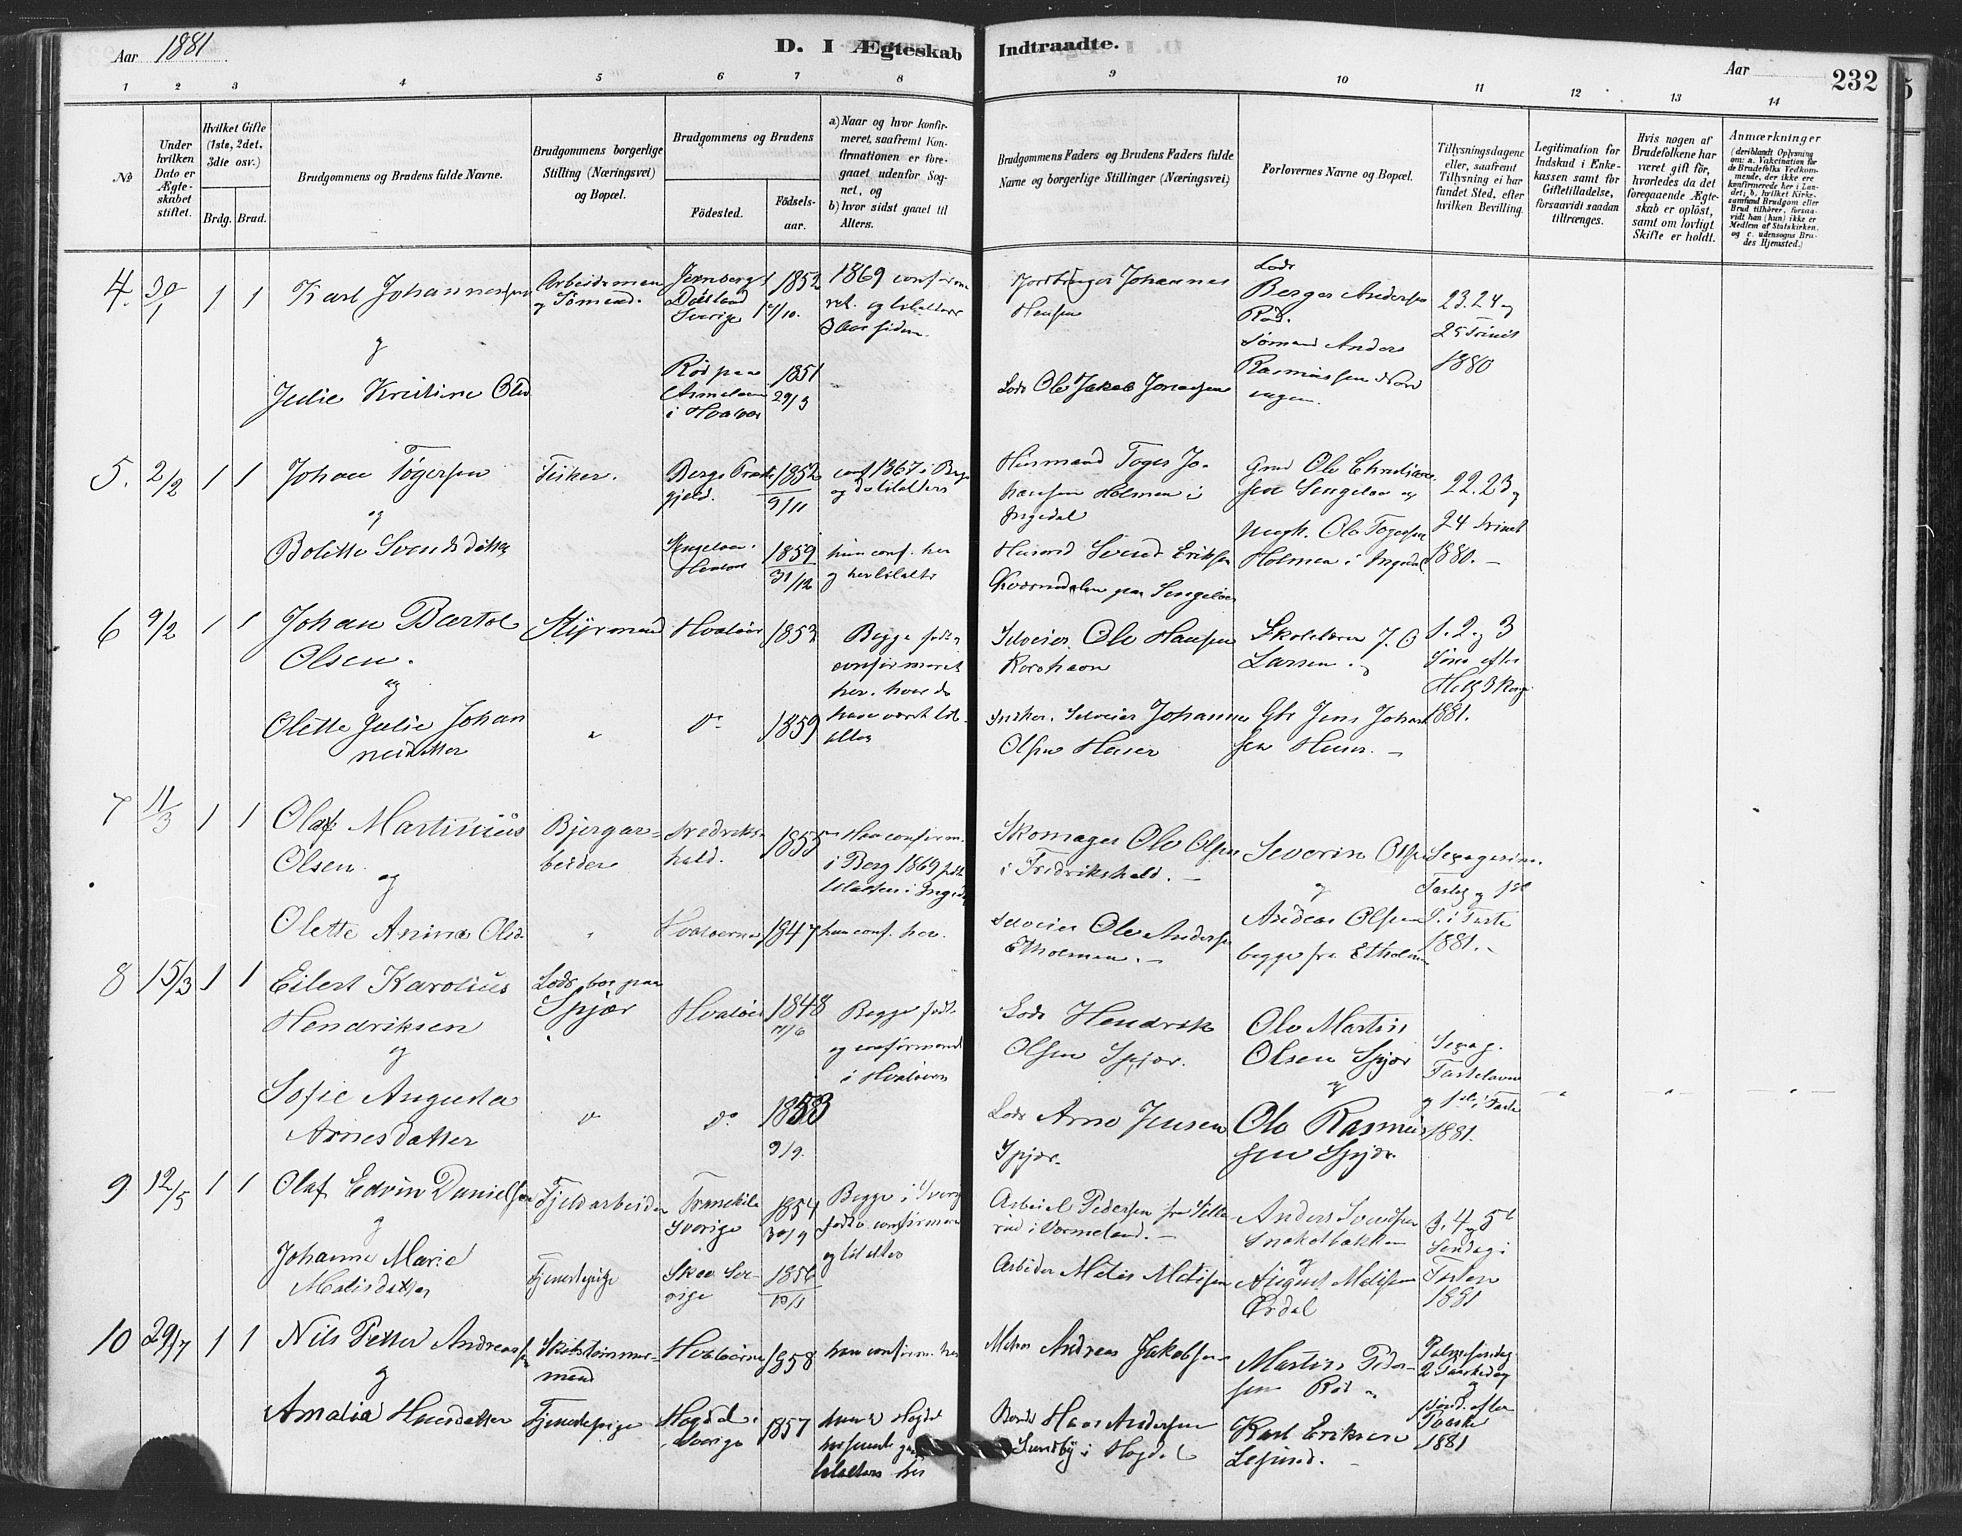 Aar 1881
D. I Ægteskab Indtraadte.
Aar
232
1 2 3 4 5 6 7 8 9 10 11 12 13 14
No
Under hvilken Dato er Ægteskabet stiftet.
Hvilket Gifte (1ste, 2det, 3die osv.)
Brdg. Brud.
Brudgommens og Brudens fulde Navne.
Brudgommens borgerlige Stilling (Næringsvei) og Bopæl.
Brudgommens og Brudens
Fødested.
Fødselsaar.
a) Naar og hvor konfirmeret, saafremt Konfirmationen er foregaaet udenfor Sognet, og
b) hvor sidst gaaet til Alters.
Brudgommens Faders og Brudens Faders fulde Navne og borgerlige Stillinger (Næringsvei)
Forlovernes Navne og Bopæl.
Tillysningsdagene eller, saafremt Tillysning ei har fundet Sted, efter hvilken Bevilling.
Legitimation for Indskud i Enkekassen samt for Giftetilladelse, forsaavidt saadan tiltrænges.
Hvis nogen af Brudefolkene har været gift før, hvorledes da det foregaaende Ægteskab er opløst, samt om lovligt Skifte er holdt.
Anmærkninger (deriblandt Oplysning om: a. Vakcination for de Brudefolks Vedkommende, der ikke ere konfirmerede her i Landet; b. hvilket Kirkesamfund Brudgom eller Brud tilhører, forsaavidt han (hun) ikke er Medlem af Statskirken, og c. udensogns Brudes Hjemsted.)
4. 30/1 1 1 Karl Johannessen
Arbeidsmand og Sømand.
Dalsland Sverige
1852 /10.
1869 confirmeret og til alters 3 Aar siden.
Jordbruger Johannes Hansen
Lods Berger Andersen Rød.
Sømand Anders Rasmussen
23. 24 og 25 Trinit 1880
og
Julie Kristine Olsd
Rød paa Asmaløen i Hvaløer
1851 29/3
Lods Ole Jakob Jonassen
5. 2/2 1 1 Johan Tøgersen
Fisker.
Bergs Præstegjeld.
1852 9/11
conf 1867 i Berg og da til alters
Husmand Toger Johansen Holmen i Ingedal
Grd Ole Christiansen Singeløe og
Ungk. Ole Togersen Holmen i Ingedal
22. 23 og 24 Trinit 1880.
og
Bolette Svendsdatter
Singeløe. Hvaløer
1859 31/12
hun conf. her og her til alters
Husmd Svend Eriksen Kværndalen paa Singeløe
6 9/2 1 1 Johan Bærtol Olsen.
Styrmand
Hvaløer
1853
Begge fødte, confirmeret her. hvor de have været til alters
Selveier Ole Hansen Korshavn
Skolelærer J. O Larsen. og
1. 2. og 3 Sønd efter Hell 3 Konge 1881.
og
Olette Julie Johannesdatter
" do 1859
Selveier Johannes Olsen Huser
Gbr Jens Johansen Huser.
7 11/3 1 1 Olaf Martinius Olsen
Bjergarbeider
Fredrikshald.
1855
Han confirm. i Berg 1869
Skomager Ole Olsen i Fredrikshald.
Severin Olsen
og
1881.
og
Olette Anine Olsd.
" Hvaløerne 1847 hun conf. her.
Selveier Ole Andersen Etholmen.
Andreas Olsen begge fra Etholmen
8 15/3 1 1 Eilert Karolius Hendriksen
Lods, bor paa Spjær
Hvaløer
1848 /6
Begge født og confirmered i Hvaløerne
Lods Hendrik Olsen Spjær.
Ole Martin Olsen Spjær
og
Fastelavn og 1ste i Faste 1881.
og
Sofie Augusta Arnesdatter
" do 1853 9/9.
Lods Arne Jensen Spjær.
Ole Rasmussen Spjær.
9 12/5 1 1 Olaf Edvin Danielsen
Fjeldarbeider
Sverige
1854 30/9
Begge i Sverig fødte. confirmeret og til alters
Anders Svendsen
og
3. 4 og 5te Søndag i Fasten 1881
og
Johanne Marie Matisdatter
Tjenestepige
Skee Sverige
1856 10/1
Arbeider Matis Matisen
August Matisen Ørdal
10 29/7 1 1 Nils Petter Andreassen
Skibstømmermand
Hvaløerne
1858
han confirm. her
Andreas Jakobsen
Martin Pedersen Rød og
Palmesøndag 2 Paaskedag og sønd. efter Paaske 1881
og
Amalia Hansdatter
Tjenestepige
Hogdal. Sverige
1857
Hans Andersen Sundby i Hogdal
Karl Eriksen